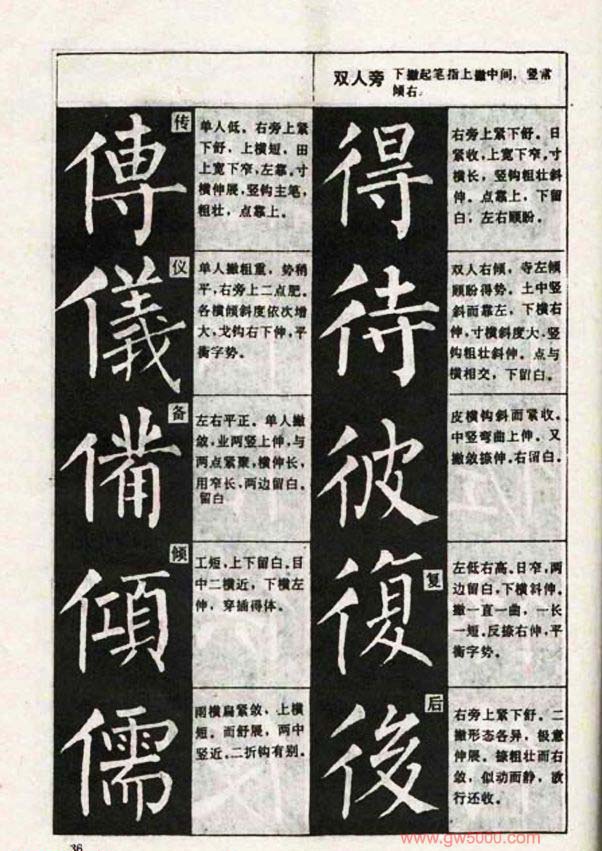 双人旁 下撇起笔指上撇中间，竖常
倾右。
得
右旁上紧下舒。日
紧收，上宽下窄。寸
横长，竖钩粗壮斜
伸。点靠上，下留
白，左右顾盼。
待
双人右倾，寺左倾
顾盼得势。土中竖
斜而靠左，下横右
伸，寸横斜度大，竖
钩粗壮斜伸。点与
横相交，下留白。
彼
皮横钩斜而紧收。
中竖弯曲上伸。又
撇敛捺伸。右留白。
復
复
左低右高。日窄，两
边留白，下横斜伸。
撇一直一曲，一长
一短。反捺右伸，平
衡字势。
後
后
右旁上紧下舒。二
撇形态各异，极意
伸展。捺粗壮而右
敛，似动而静，欲
行还收。
傳
传
单人低。右旁上紧
下舒，上横短。田
上宽下窄，左靠。寸
横伸展，竖钩主笔，
粗壮，点靠上。
儀
仪
单人撇粗重，势稍
平，右旁上二点肥。
各横倾斜度依次增
大，戈钩右下伸，平
衡字势。
備
备
左右平正。单人撇
敛，业两竖上伸，与
两点紧聚，横伸长，
用窄长，两边留白。
留白
傾
倾
工短，上下留白。目
中二横近，下横左
伸，穿插得体。
儒
雨横扁紧敛，上横
短。而舒展，两中
竖近，二折钩有别。
36
www.gw5000.com